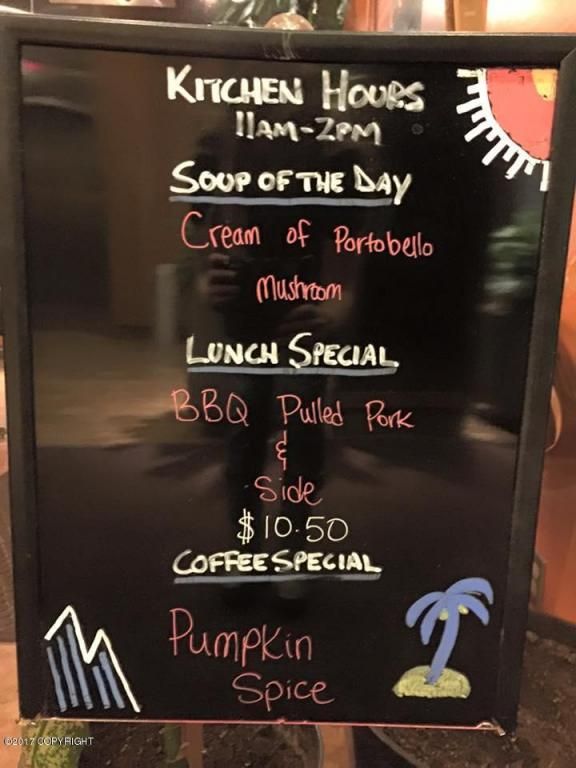 KITCHEN HOURS
11AM-2PM
SOUP OF THE DAY
Cream of Portobello
Mushroom
LUNCH SPECIAL
BBQ Pulled Pork
&
Side
$10.50
COFFEE SPECIAL
Pumpkin
Spice
©2017 COPYRIGHT